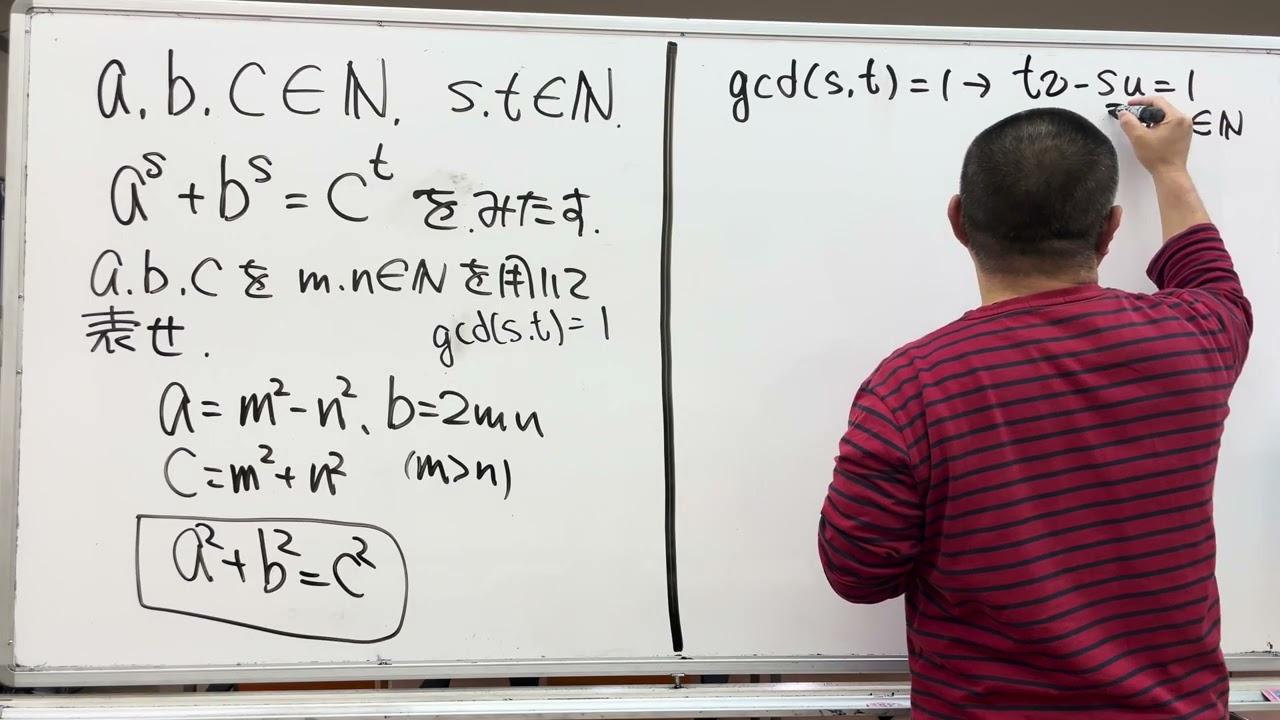 a.b.c∈ℕ, s.t∈ℕ.
a^s+b^s=c^t をみたす.
a.b.cを m.n∈ℕを用いて
表せ.
gcd(s.t)=1
a=m²-n²、b=2mn
c=m²+n² (m>n)
a²+b²=c²
gcd(s,t)=1→ tv-su=1
∈ℕ